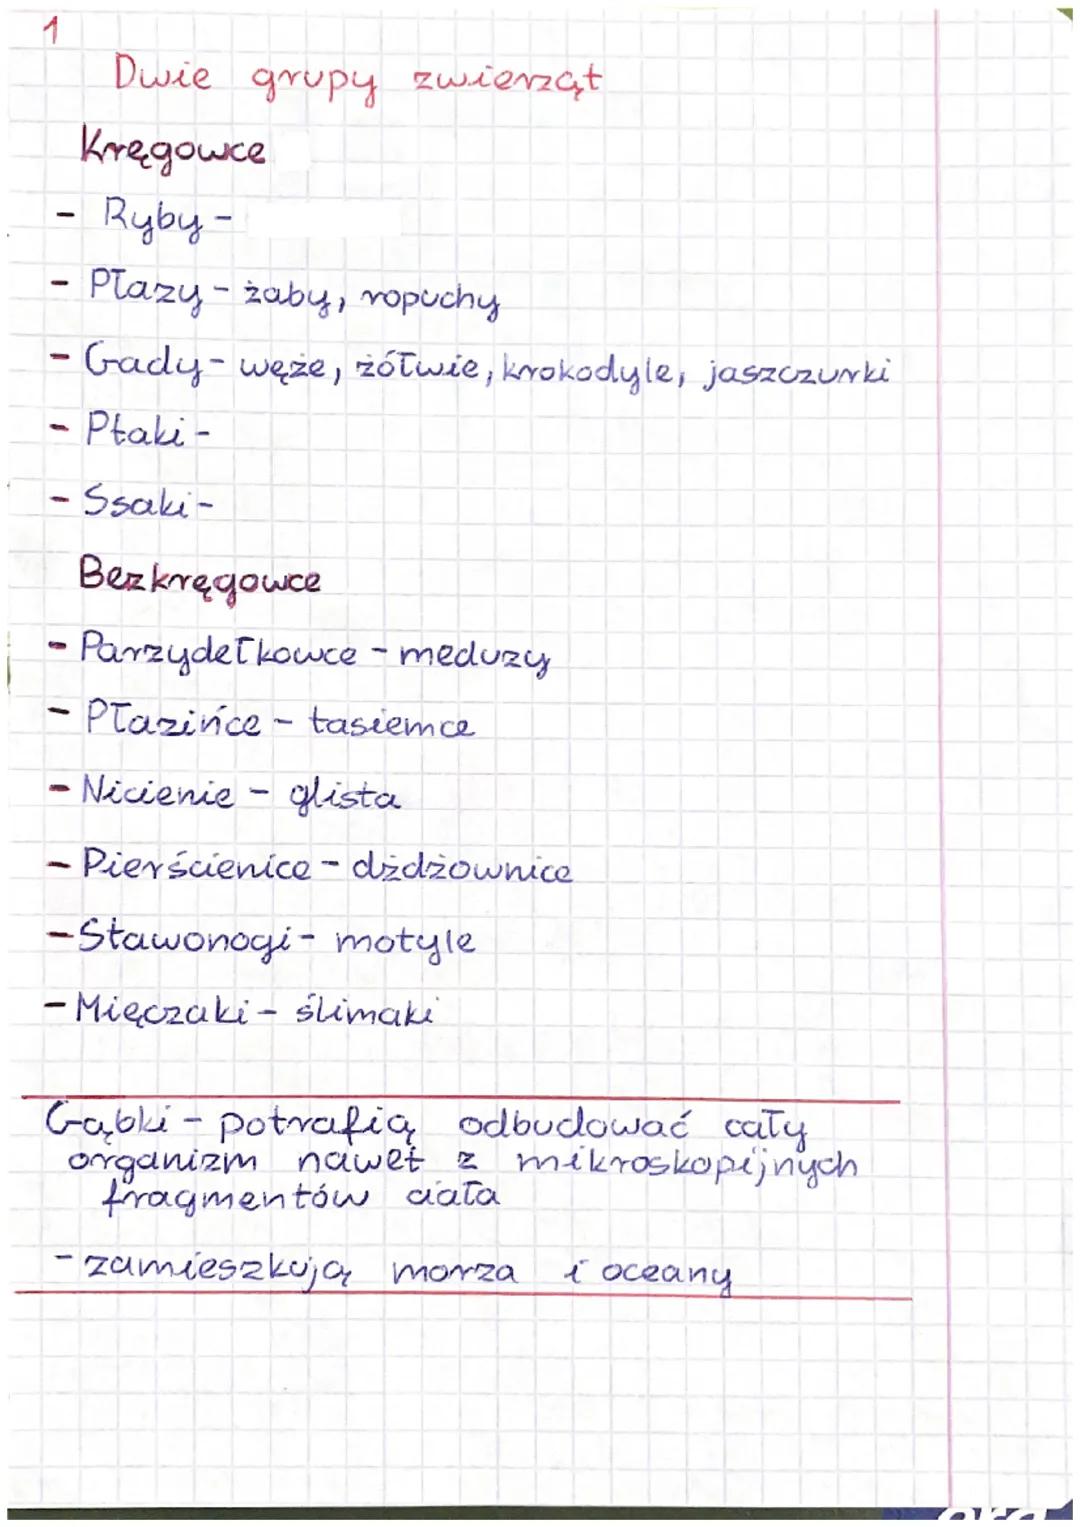 1
Dwie grupy zwierząt
Kręgowce
- Ryby -
- Płazy - żaby, ropuchy
- Gady - węże, żółwie, krokodyle, jaszczurki
- Ptaki -
- Ssaki -
Bezkręgowce
- Parzydełkowce - meduzy
- Płazińce - tasiemce
- Nicienie - glista
- Pierścienice - dżdżownice
- Stawonogi - motyle
- Mięczaki - ślimaki
Gąbki - potrafią odbudować cały
organizm nawet z mikroskopijnych
fragmentów ciała
- zamieszkują morza i oceany